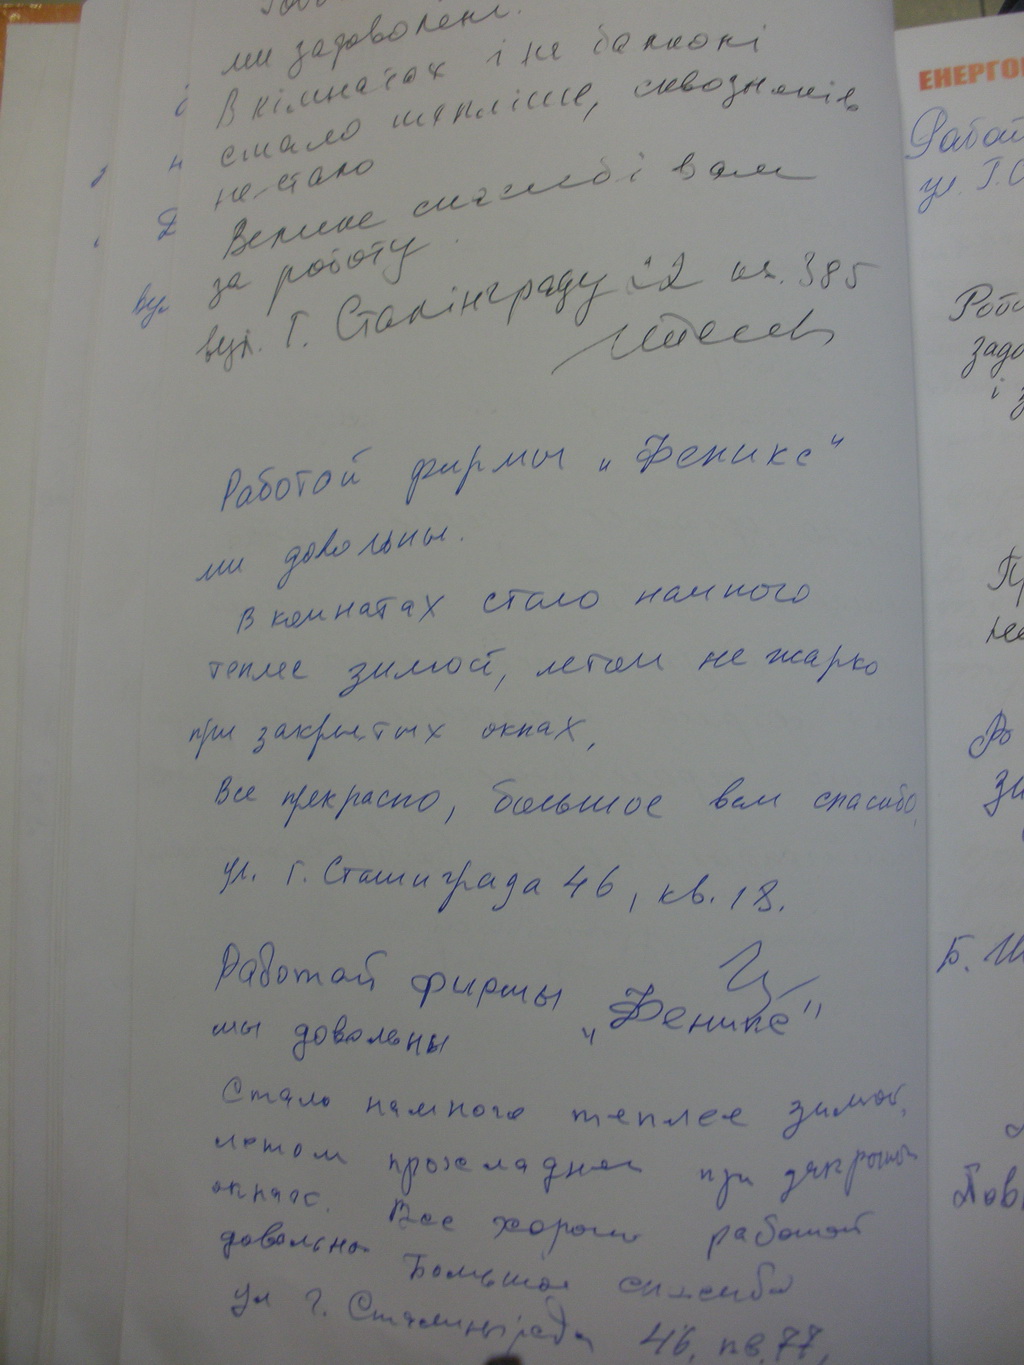 ми задоволені.
В кімнатах і на балконі
стало тепліше, сквозняків
не стало
Велике спасибі вам
за роботу.
вул. Г. Сталінграду 12 кв. 385
Работой фирмы „Феникс"
ми довольны.
В комнатах стало намного
теплее зимой, летом не жарко
при закрытых окнах,
Все прекрасно, большое вам спасибо,
ул. Г. Сталинграда 46, кв. 18.
Работой фирмы „Феникс"
мы довольны
Стало намного теплее зимой,
летом прохладнее при закрытых
окнах. Все хорошо работой
довольна Большое спасибо
ул Г. Сталинграда 46, кв. 77,
ЕНЕРГО
Работ
ул. Г. С
Робо
задо
і з
Б. Ш